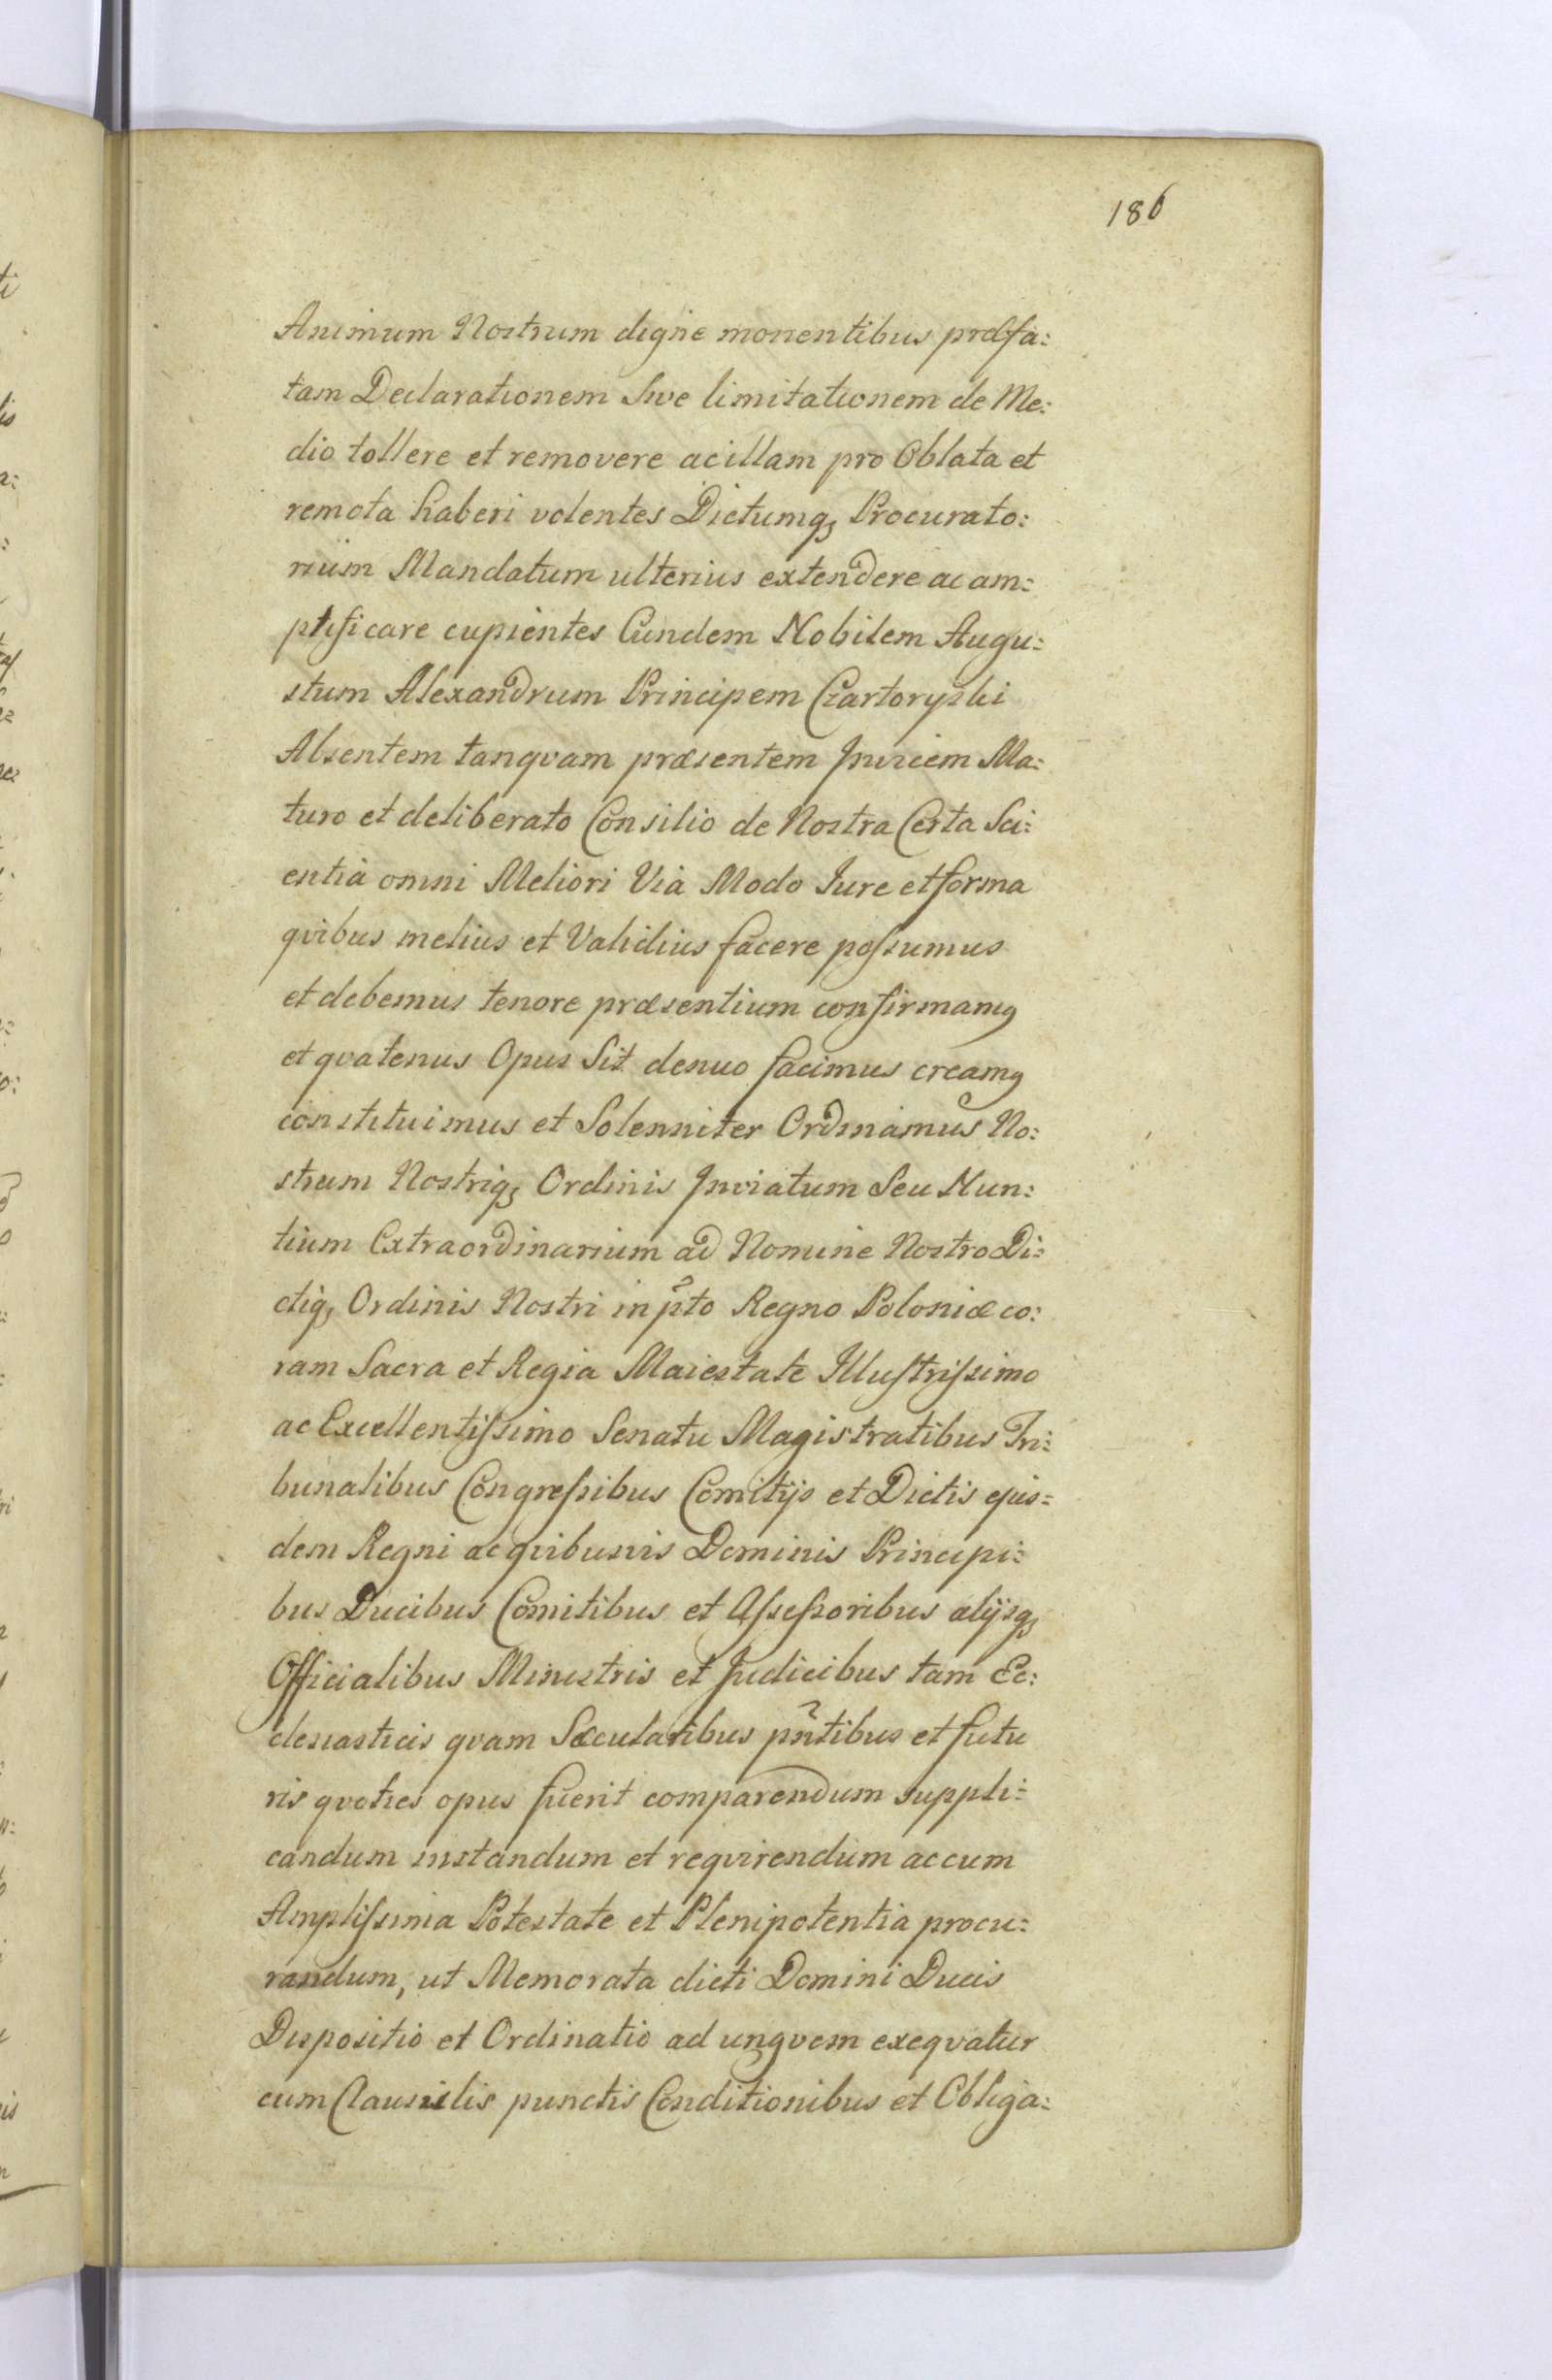 186
Animum Nostrum digne monentibus præfa:
tam Declarationem Sive limitationem de Me:
dio tollere et removere ac illam pro Oblata et
remota haberi volentes Dictumq, Procurato:
rium Mandatum ulterius extendere ac am:
plificare cupientes Eundem Nobilem Augu:
stum Alexandrum Principem Czartoryski
Absentem tanqvam præsentem Invicem Ma:
turo et deliberato Consilio de Nostra Certa Sci:
entia omni Meliori Via Modo Jure et forma
qvibus melius et Validius facere possumus
et debemus tenore præsentium confirmamq
et qvatenus Opus Sit denuo facimus creamq
constituimus et Solenniter Ordinamus No:
strum Nostriq, Ordinis Inviatum Seu Nun:
tium Extraordinarium ad Nomine Nostro Di:
ctiq, Ordinis Nostri in pto Regno Poloniæ co:
ram Sacra et Regia Maiestate Illustrissimo
ac Excellentissimo Senatu Magistratibus Tri:
bunalibus Congressibus Comitijs et Dictis ejus:
dem Regni ac qvibusvis Dominis Principi:
bus Ducibus Comitibus et Assessoribus alijsq,
Officialibus Ministris et Judicibus tam Ec:
clesiasticis qvam Sæcularibus pntibus et futu
ris qvoties opus fuerit comparendum suppli:
candum instandum et reqvirendum ac cum
Amplissima Potestate et Plenipotentia procu:
randum, ut Memorata dicti Domini Ducis
Dispositio et Ordinatio ad ungvem exeqvatur
cum Clausulis punctis Conditionibus et Obliga: